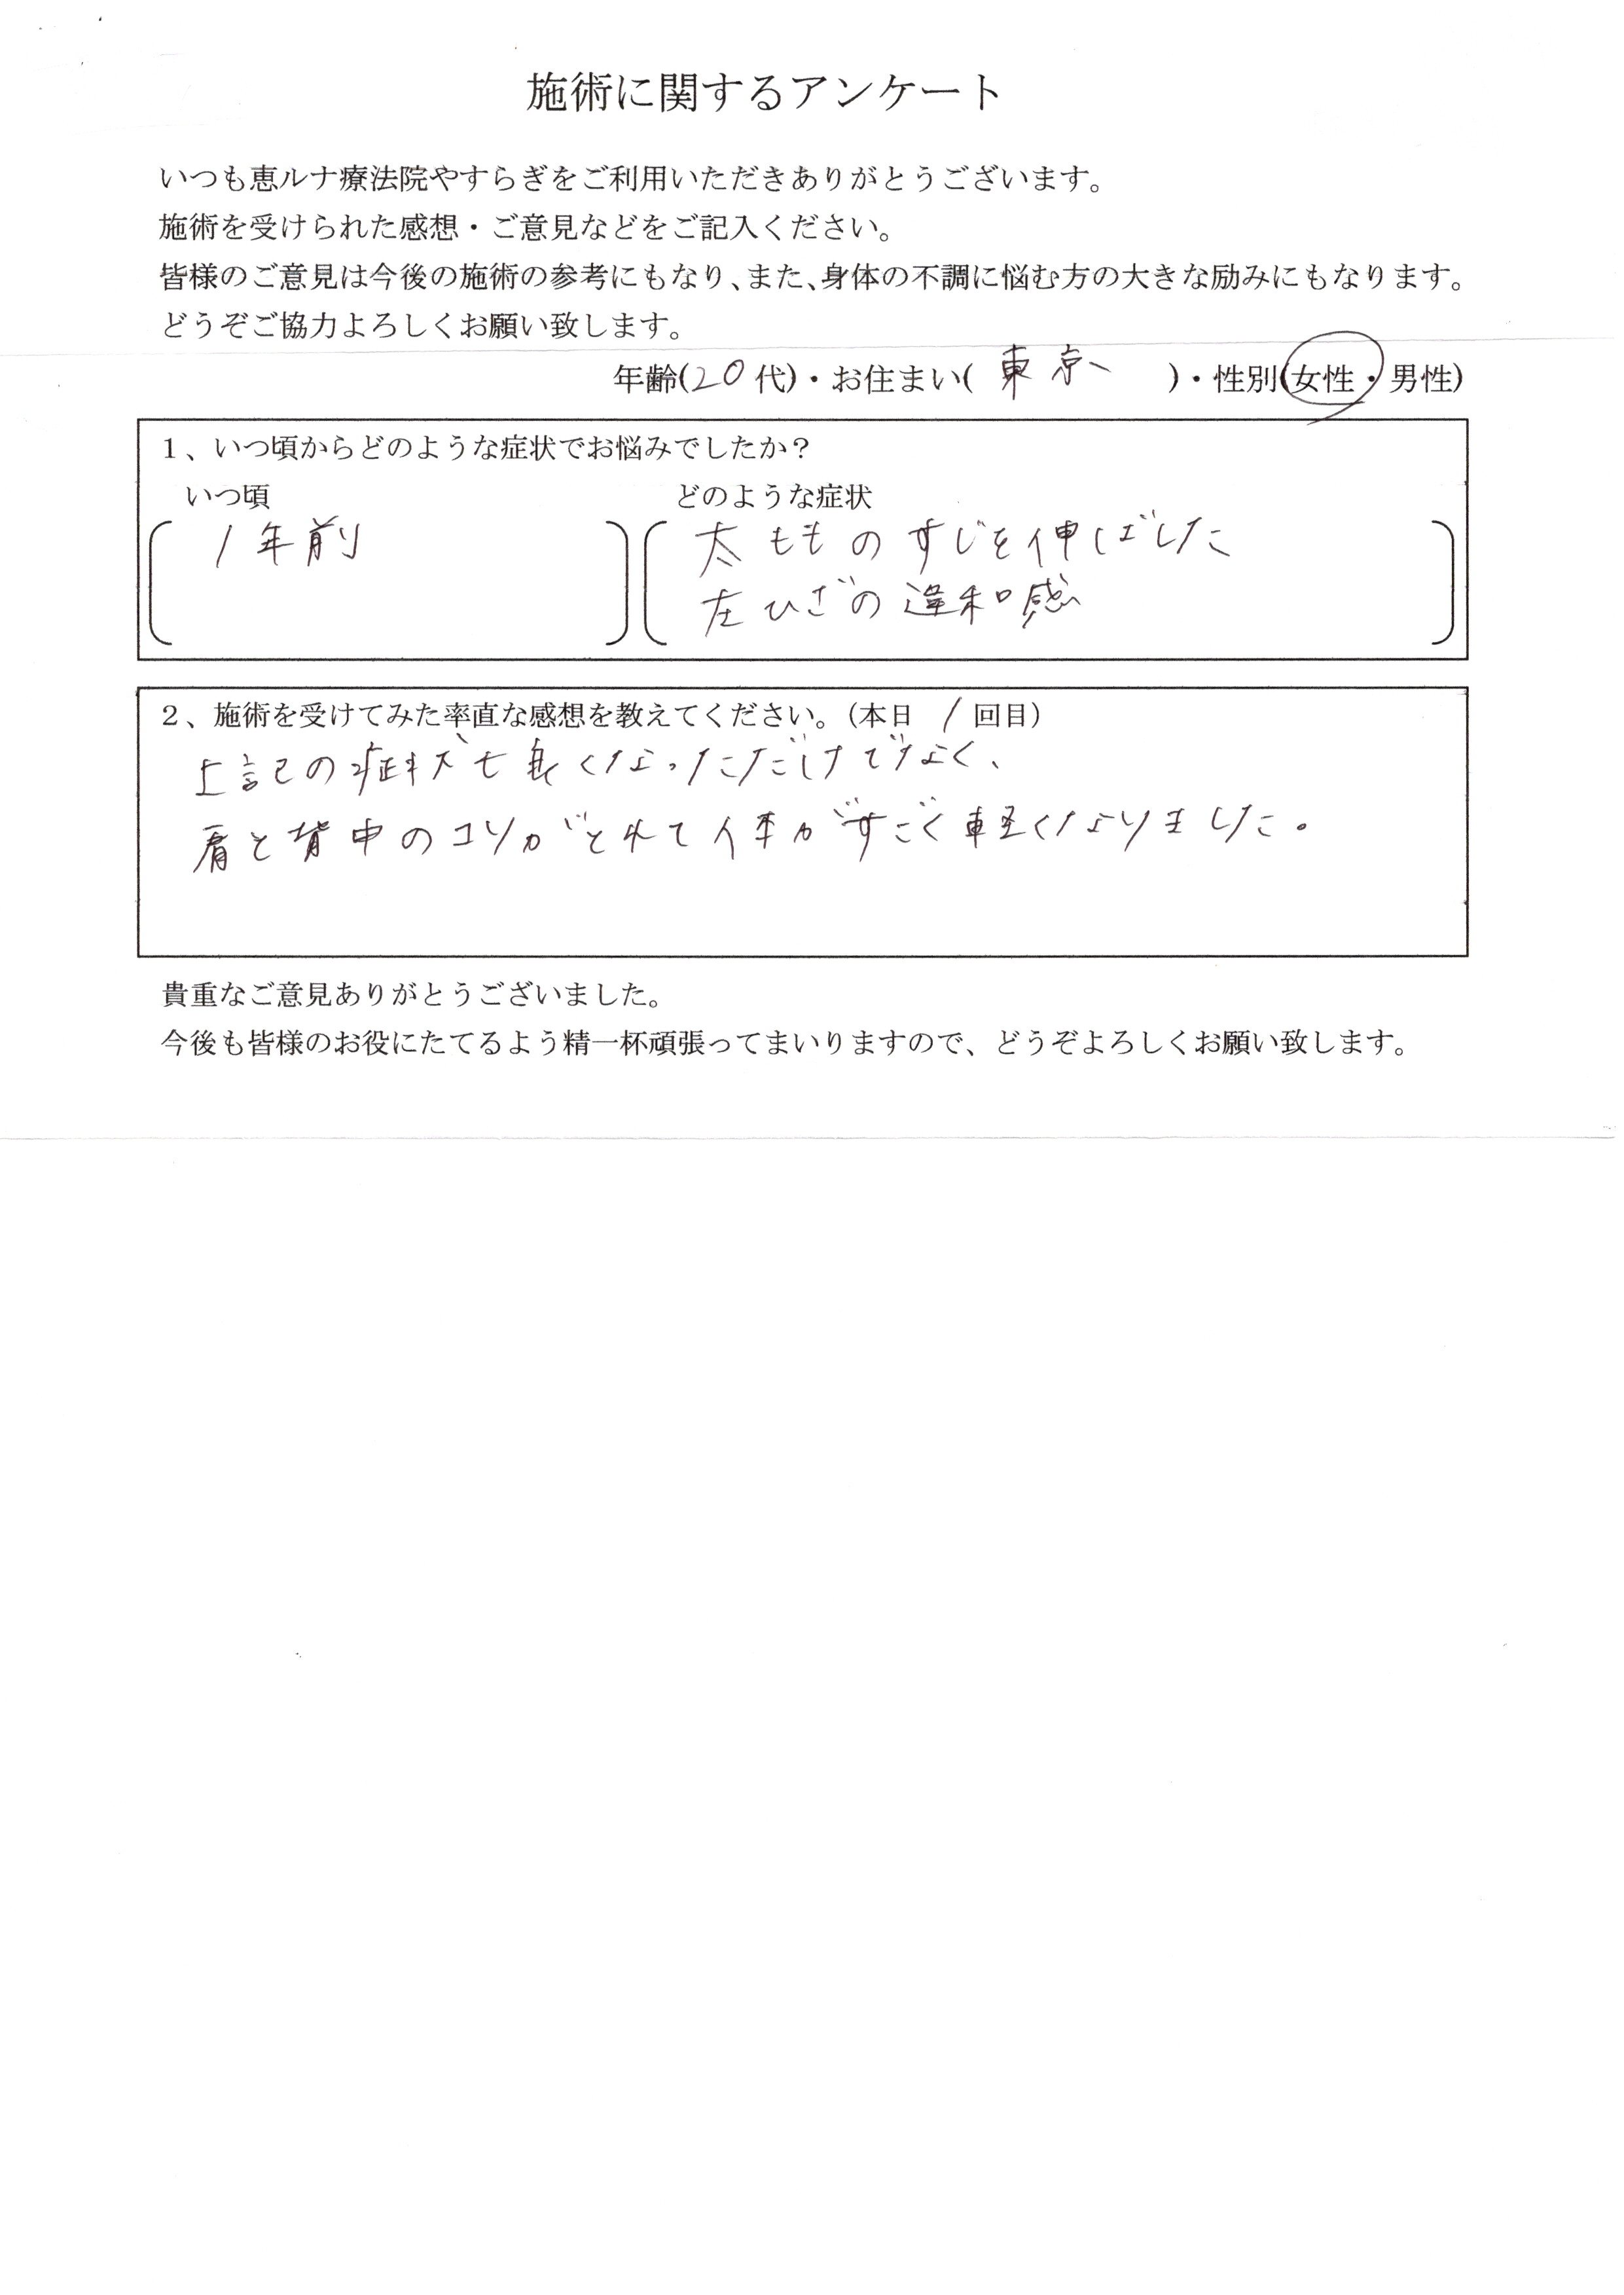 施術に関するアンケート
いつも恵ルナ療法院やすらぎをご利用いただきありがとうございます。
施術を受けられた感想・ご意見などをご記入ください。
皆様のご意見は今後の施術の参考にもなり、また、身体の不調に悩む方の大きな励みにもなります。
どうぞご協力よろしくお願い致します。
年齢(20代)・お住まい( 東京 )・性別(女性・男性)
1、いつ頃からどのような症状でお悩みでしたか？
いつ頃 どのような症状
1年前 太もものすじを伸ばした
左ひざの違和感
2、施術を受けてみた率直な感想を教えてください。(本日 1 回目)
上記の症状も良くなっただけでなく、
肩と背中のコリがとれて体がすごく軽くなりました。
貴重なご意見ありがとうございました。
今後も皆様のお役にたてるよう精一杯頑張ってまいりますので、どうぞよろしくお願い致します。